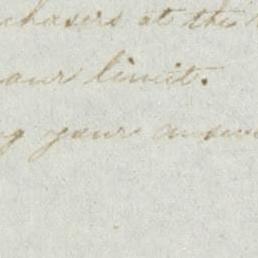 chasers at the
our limit.
g your answer